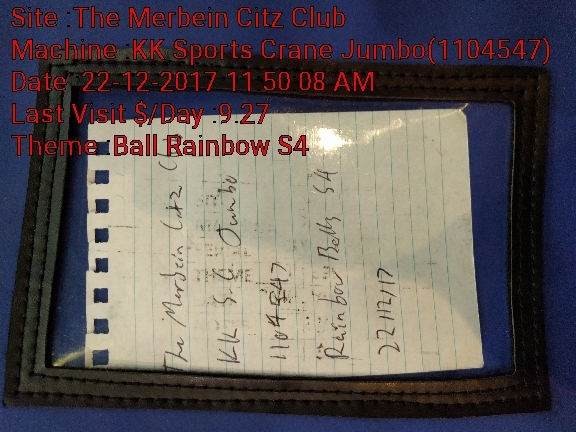 Site :The Merbein Citz Club
Machine :KK Sports Crane Jumbo(1104547)
Date :22-12-2017 11 50 08 AM
Last Visit $/Day :9.27
Theme :Ball Rainbow S4
The Merbein Citz Club
KK S.C. Jumbo
1104547
Rainbow Balls S4
22/12/17